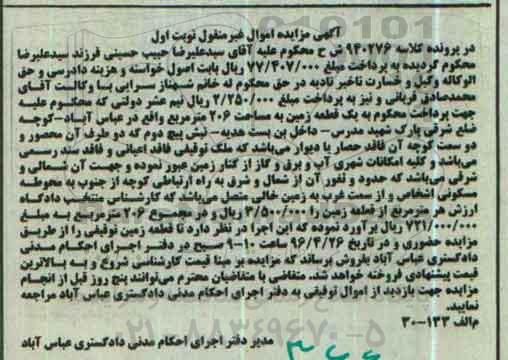 آگهی مزایده اموال غیرمنقول نوبت اول
در پرونده کلاسه ۹۴۰۲۷۶ ش ح محکوم علیه آقای سیدعلیرضا حبیب حسینی فرزند سیدعلیرضا
محکوم گردیده به پرداخت مبلغ ۷۷/۴۰۷/۰۰۰ ریال بابت اصول خواسته و هزینه دادرسی و حق
الوکاله وکیل و خسارت تاخیر تادیه در حق محکوم له خانم شهناز سرایی با وکالت آقای
محمدصادق قربانی و نیز به پرداخت مبلغ ۲/۲۵۰/۰۰۰ ریال نیم عشر دولتی که محکوم علیه
جهت پرداخت محکوم به یک قطعه زمین به مساحت ۲۰۶ مترمربع واقع در عباس آباد-کوچه
ضلع شرقی پارک شهید مدرس- داخل بن بست هدیه- نبش پیچ دوم که دو طرف آن محصور و
دو سمت کوچه آن فاقد حصار یا دیوار می‌باشد که ملک توقیفی فاقد اعیانی و فاقد سند رسمی
می‌باشد و کلیه امکانات شهری آب و برق و گاز از کنار زمین عبور نموده و جهت آن شمالی و
شرقی می‌باشد که حدود و ثغور آن از شمال و شرق به راه ارتباطی کوچه از جنوب به محوطه
مسکونی اشخاص و از سمت غرب به زمین خالی متصل می‌باشد که کارشناس منتخب دادگاه
ارزش هر مترمربع از قطعه زمین را ۳/۵۰۰/۰۰۰ ریال و در مجموع ۲۰۶ مترمربع به مبلغ
۷۲۱/۰۰۰/۰۰۰ ریال برآورد نموده که این اجرا در نظر دارد تا قطعه زمین توقیفی را از طریق
مزایده حضوری و در تاریخ ۹۶/۴/۲۶ ساعت ۱۰-۹ صبح در دفتر اجرای احکام مدنی
دادگستری عباس آباد بفروش برساند که مزایده بر مبنا قیمت کارشناسی شروع و به بالاترین
قیمت پیشنهادی فروخته خواهد شد. متقاضی یا متقاضیان محترم می‌توانند پنج روز قبل از انجام
مزایده جهت بازدید از اموال توقیفی به دفتر اجرای احکام مدنی دادگستری عباس آباد مراجعه
نمایید.
م‌الف ۱۳۳-۳۰
مدیر دفتر اجرای احکام مدنی دادگستری عباس آباد
۰۲۱-۸۸۳۴۹۶۷۰-۵